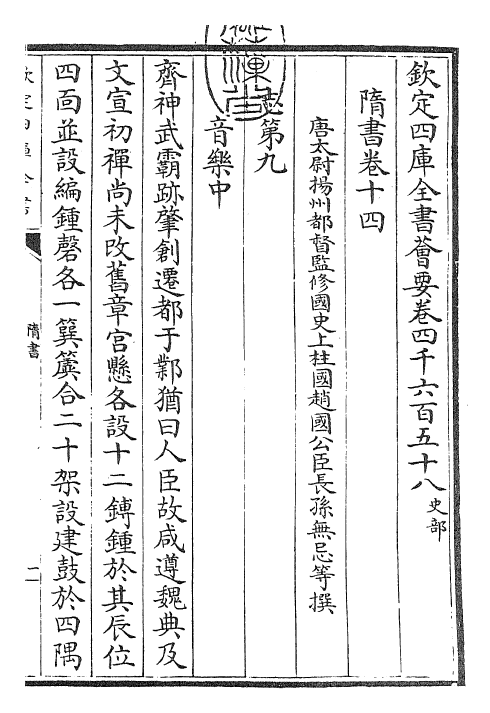 欽定四庫全書薈要卷四千六百五十八 史部
隋書卷十四
唐太尉揚州都督監修國史上柱國趙國公臣長孫無忌等撰
志第九
音樂中
齊神武霸跡肇創遷都于鄴猶曰人臣故咸遵魏典及
文宣初禪尚未改舊章宮懸各設十二鎛鍾於其辰位
四面並設編鍾磬各一簨簴合二十架設建鼓於四隅
隋書